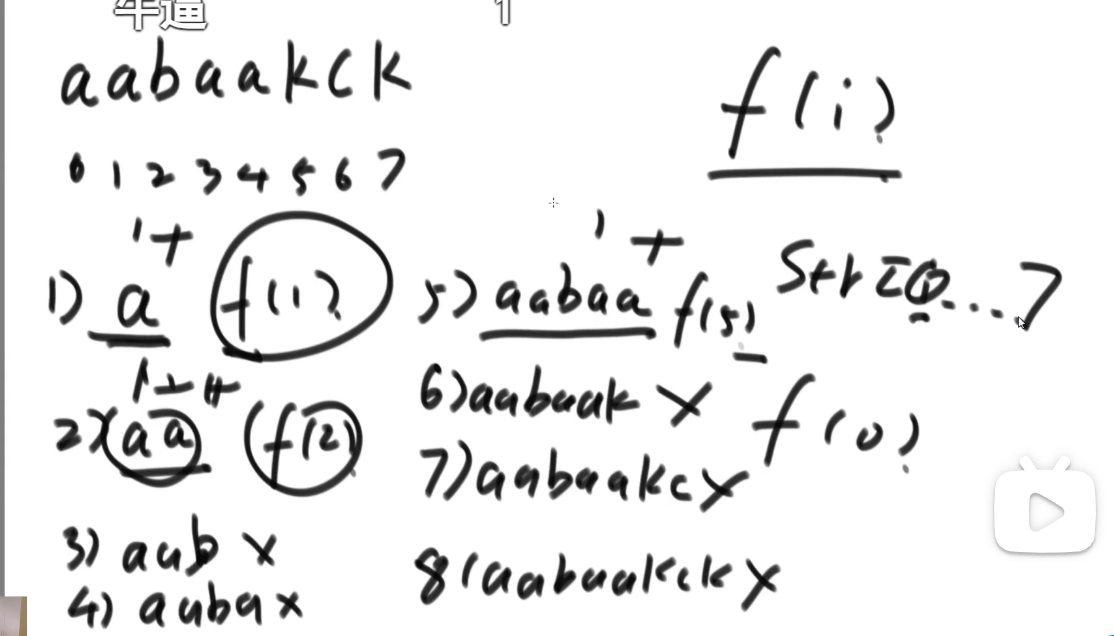 牛逼
1
aabaakck
0 1 2 3 4 5 6 7
f(i)
1+
1) a f(1)
1+
2) aa f(2)
3) aab x
4) aaba x
1+
5) aabaa f(5)
6) aabaak x
7) aabaakc x
8) aabaakck x
str[0...7
f(0)